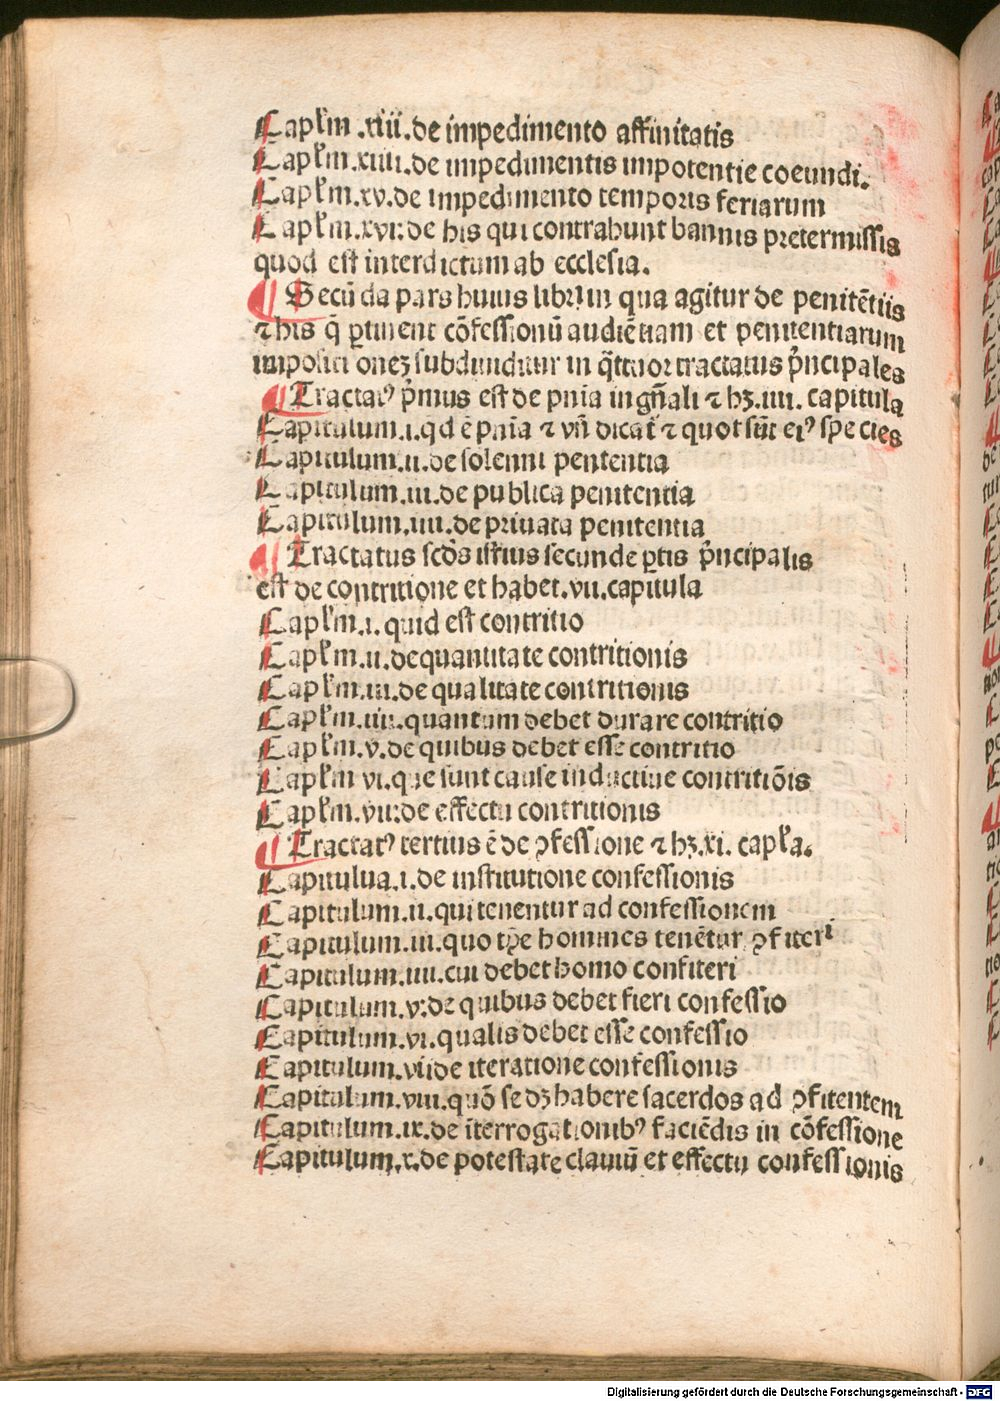 Capłm .xiii.de impedimento affinitatis
Capłm.xiiii.de impedimentis impotentie coeundi.
Capłm.xv.de impedimento temporis feriarum
Capłm.xvi.de his qui contrahunt bannis pretermissis
quod est interdictum ab ecclesia.
¶ Secūda pars huius libri in qua agitur de penitētiis
⁊ his q̄ ꝑtinent cōfessionū audiētiam et penitentiarum
impositiones subdiuiditur in q̄ttuor tractatus pͥncipales
¶ Tractatꝰ pͥmus est de pnīa in gn̄ali ⁊ hꝫ.iiii. capitula
Capitulum.i.qd ē pnīa ⁊ vn̄ dicat̄ ⁊ quot sūt eiꝰ species
Capitulum.ii.de solenni penitentia
Capitulum.iii.de publica penitentia
Capitulum.iiii.de priuata penitentia
¶ Tractatus scd̄s istius secunde ꝑtis pͥncipalis
est de contritione et habet.vii.capitula
Capłm.i.quid est contritio
Capłm.ii.de quantitate contritionis
Capłm.iii.de qualitate contritionis
Capłm.iiii.quantum debet durare contritio
Capłm.v.de quibus debet esse contritio
Capłm vi.que sunt cause inductiue contritiōis
Capłm.vii.de effectu contritionis
¶ Tractatꝰ tertius ē de ꝯfessione ⁊ hꝫ.xi. capła.
Capitulua.i.de institutione confessionis
Capitulum.ii.qui tenentur ad confessionem
Capitulum.iii.quo tp̄e homines tenētur ꝯfiteri
Capitulum.iiii.cui debet homo confiteri
Capitulum.v.de quibus debet fieri confessio
Capitulum.vi.qualis debet esse confessio
Capitulum.vii.de iteratione confessionis
Capitulum.viii.quō se dꝫ habere sacerdos ad ꝯfitentem
Capitulum.ix.de īterrogationibꝰ faciēdis in cōfessione
Capitulum.x.de potestate clauiū et effectu confessionis
Digitalisierung gefördert durch die Deutsche Forschungsgemeinschaft - DFG